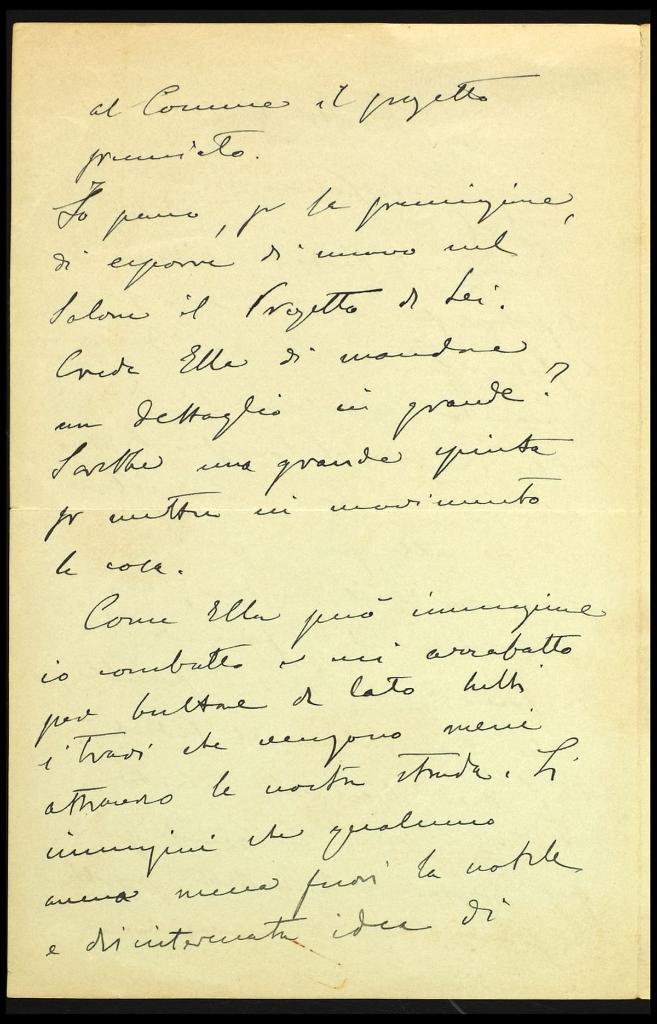 al Comune il progetto
premiato.
Io penso, pr la premiazione,
di esporre di nuovo nel
Salone il Progetto di Lei.
Crede Ella di mandare
un dettaglio in grande?
Sarebbe una grande spinta
pr mettere in movimento
la cosa.
Come Ella può immaginare
io combatto e mi arrabatto
per buttare di lato tutti
i travi che vengono messi
attraverso la nostra strada. Si
immagini che qualcuno
aveva messa fuori la nobile
e disinteressata idea di